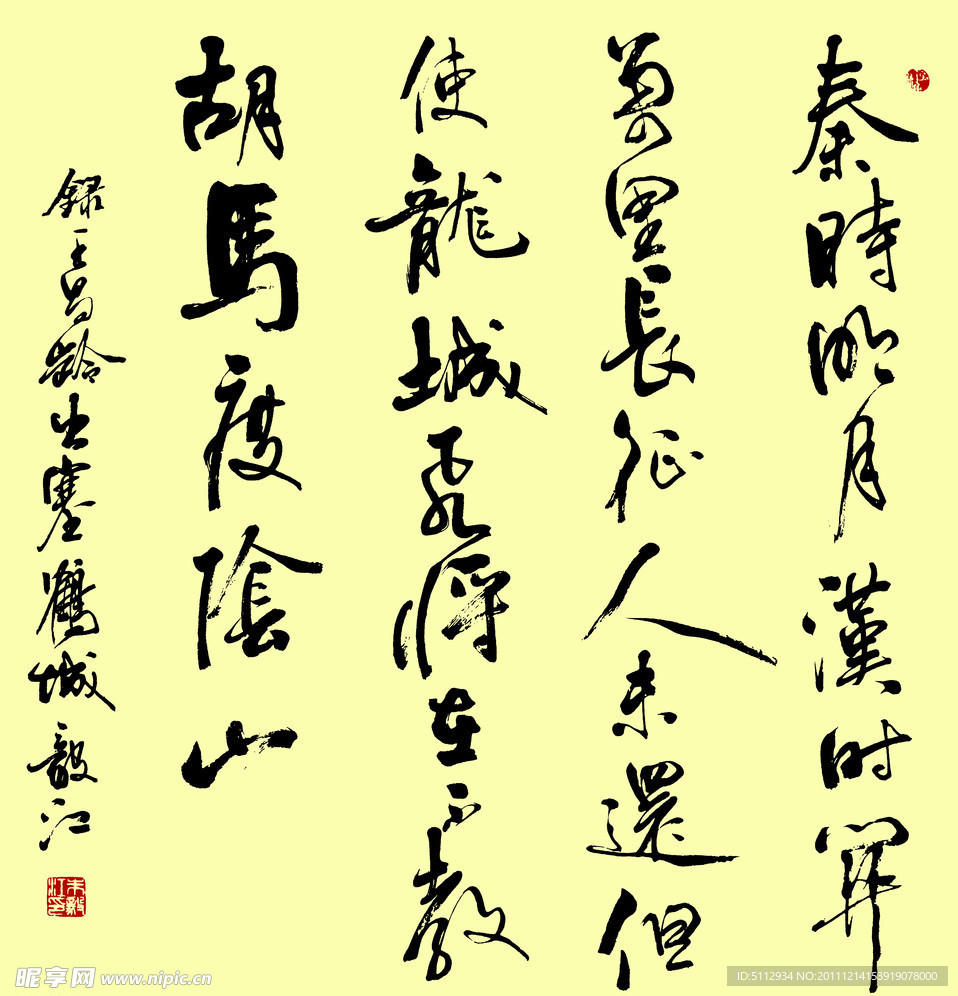 秦時明月漢时関
萬里長征人未還但
使龍城飛將在不教
胡馬度陰山
録王昌齡出塞鶴城毅江
朱毅江印
昵享网 www.nipic.cn
ID:5112934 NO:20111214153919078000